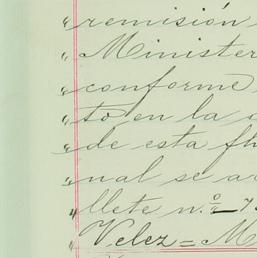 " remisión
" Minister
" conforme
" to en la
" de esta fh
" nal se a
" llete n.º 7
" Velez = M